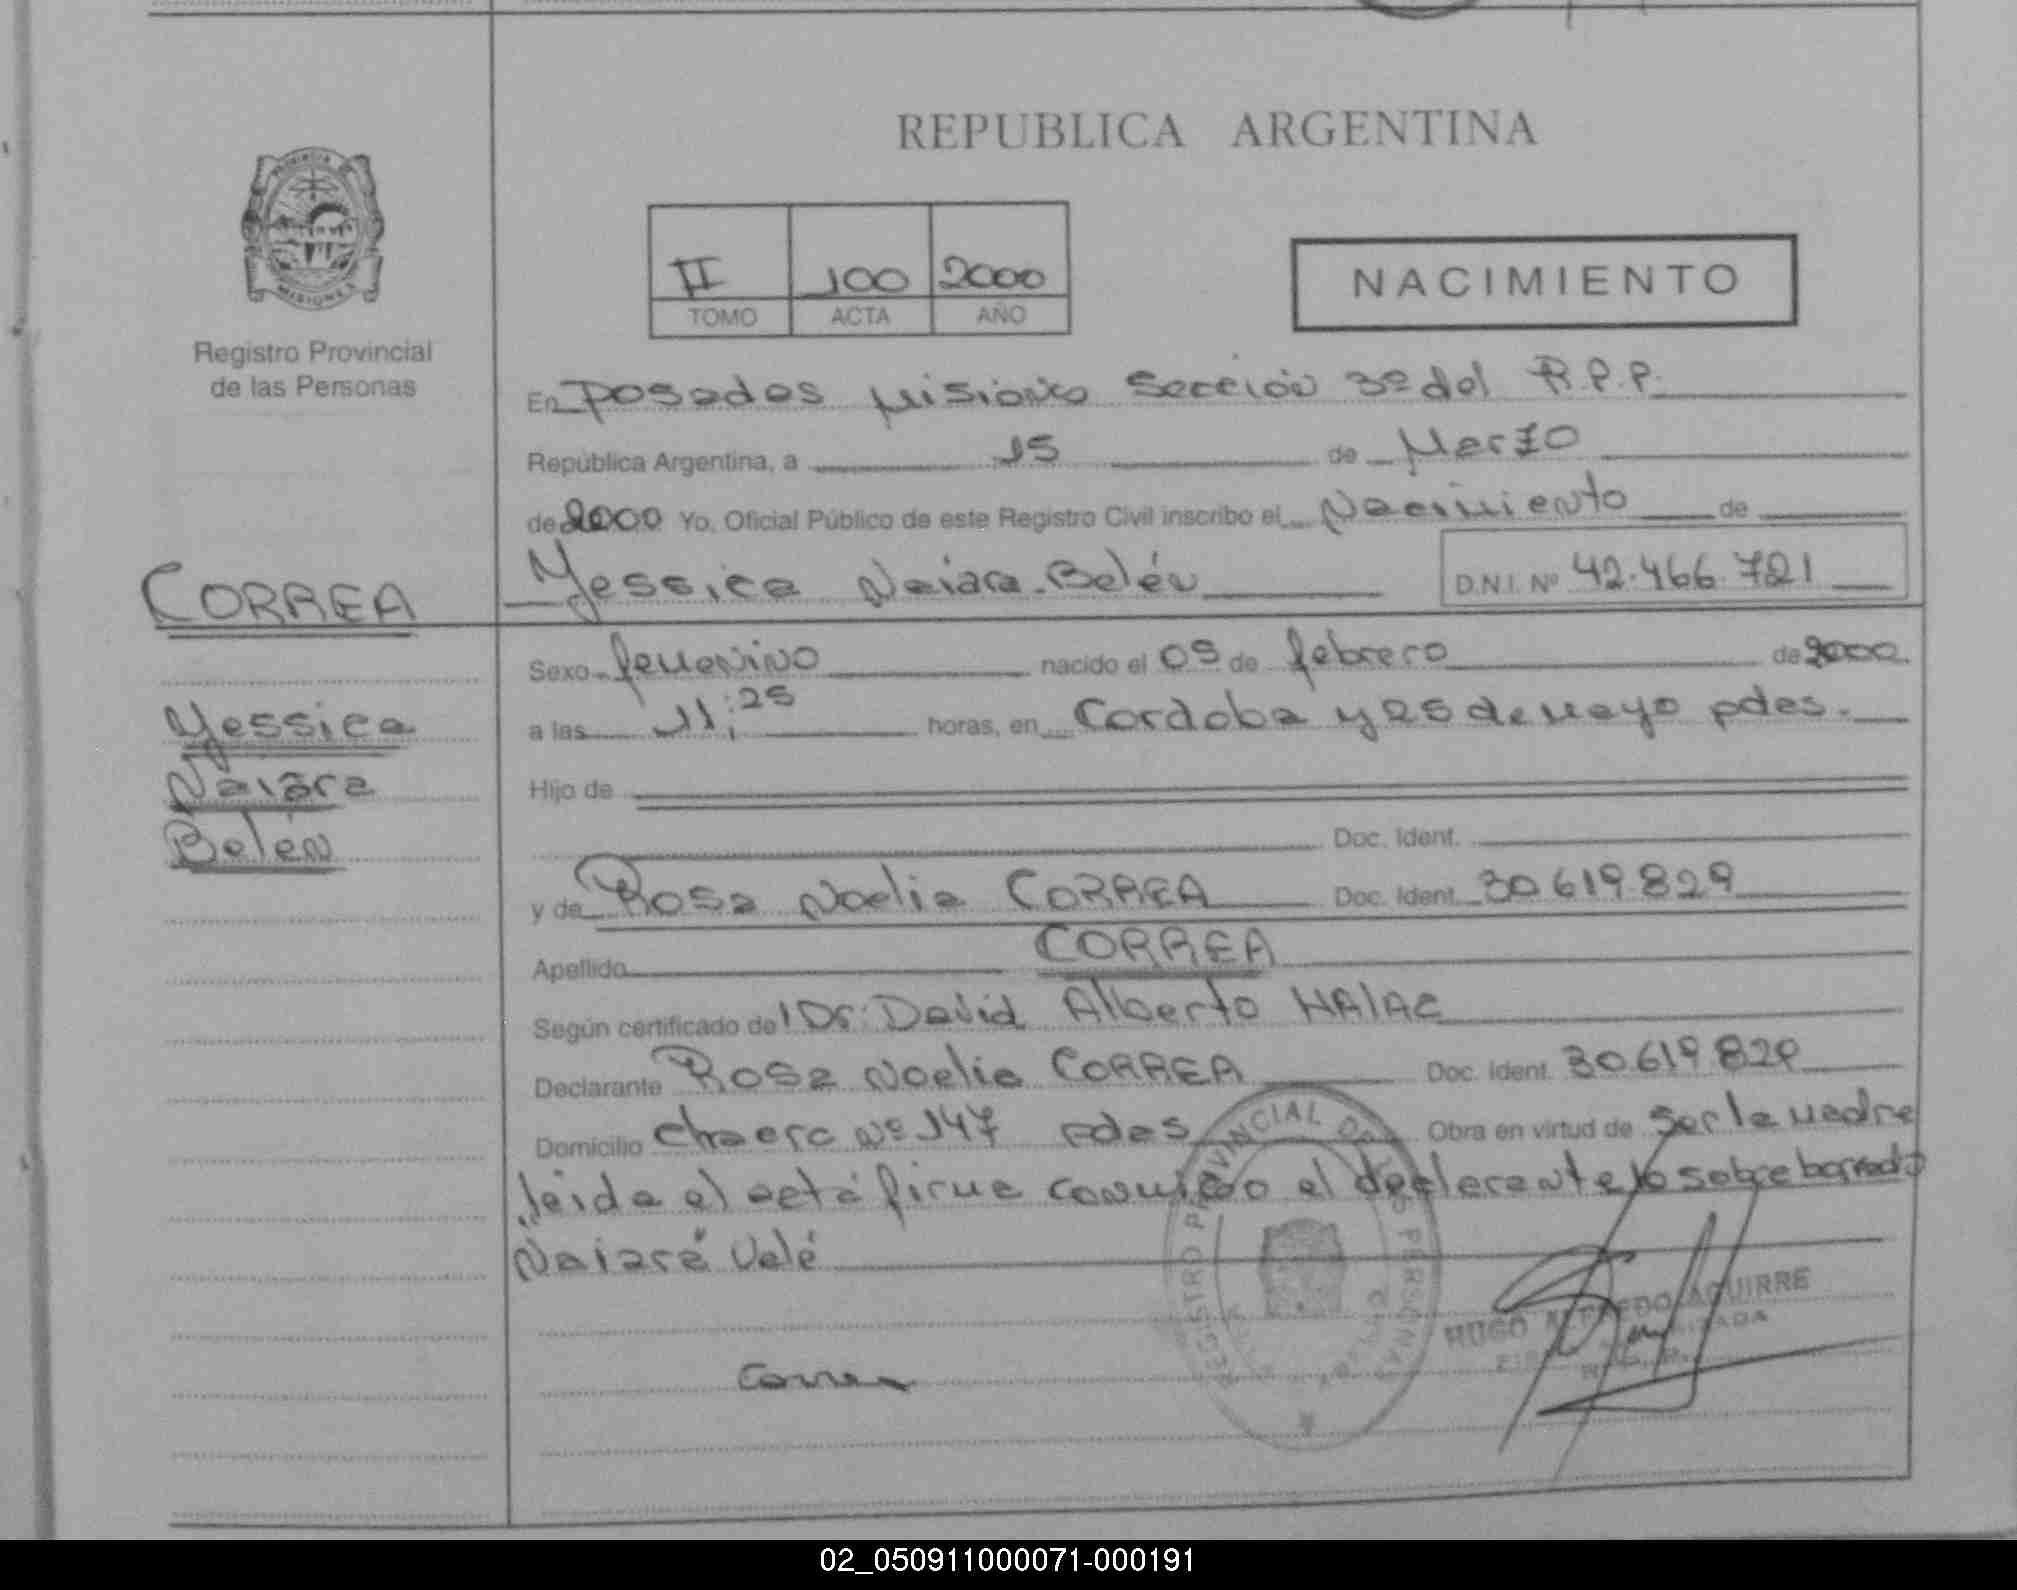 REPUBLICA ARGENTINA
PROVINCIA
MISIONES
Registro Provincial
de las Personas
II 100 2000
TOMO ACTA AÑO
NACIMIENTO
En Posadas Misiones Sección 3º del R.P.P.
República Argentina, a 15 de Marzo
de 2000 Yo, Oficial Público de este Registro Civil inscribo el Nacimiento de
CORREA
Yessica Naiara Belén D.N.I. Nº 42.466.721
Sexo femenino nacido el 09 de febrero de 2000
a las 11:25 horas, en Cordoba y 25 de mayo pdas.
Yessica
Naiara
Belén
Hijo de
Doc. Ident.
y de Rosa Noelia CORREA Doc. Ident. 30.619.829
Apellido CORREA
Según certificado del Dr. David Alberto HALAC
Declarante Rosa Noelia CORREA Doc. Ident. 30.619.829
Domicilio Chacra Nº 147 Pdas Obra en virtud de Ser la madre
leida el acta firma conmigo el declarante lo sobreborrado
Naiara Vale
REGISTRO PROVINCIAL DE LAS PERSONAS
HUGO ALFREDO AGUIRRE
Correa
02_050911000071-000191